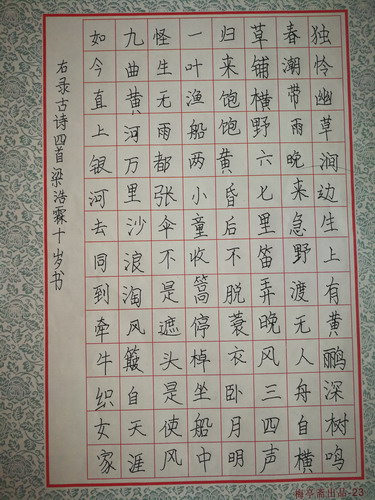 独怜幽草涧边生上有黄鹂深树鸣
春潮带雨晚来急野渡无人舟自横
草铺横野六七里笛弄晚风三四声
归来饱饱黄昏后不脱蓑衣卧月明
一叶渔船两小童收篙停棹坐船中
怪生无雨都张伞不是遮头是使风
九曲黄河万里沙浪淘风簸自天涯
如今直上银河去同到牵牛织女家
右录古诗四首梁浩霖十岁书
梅亭斋出品-23